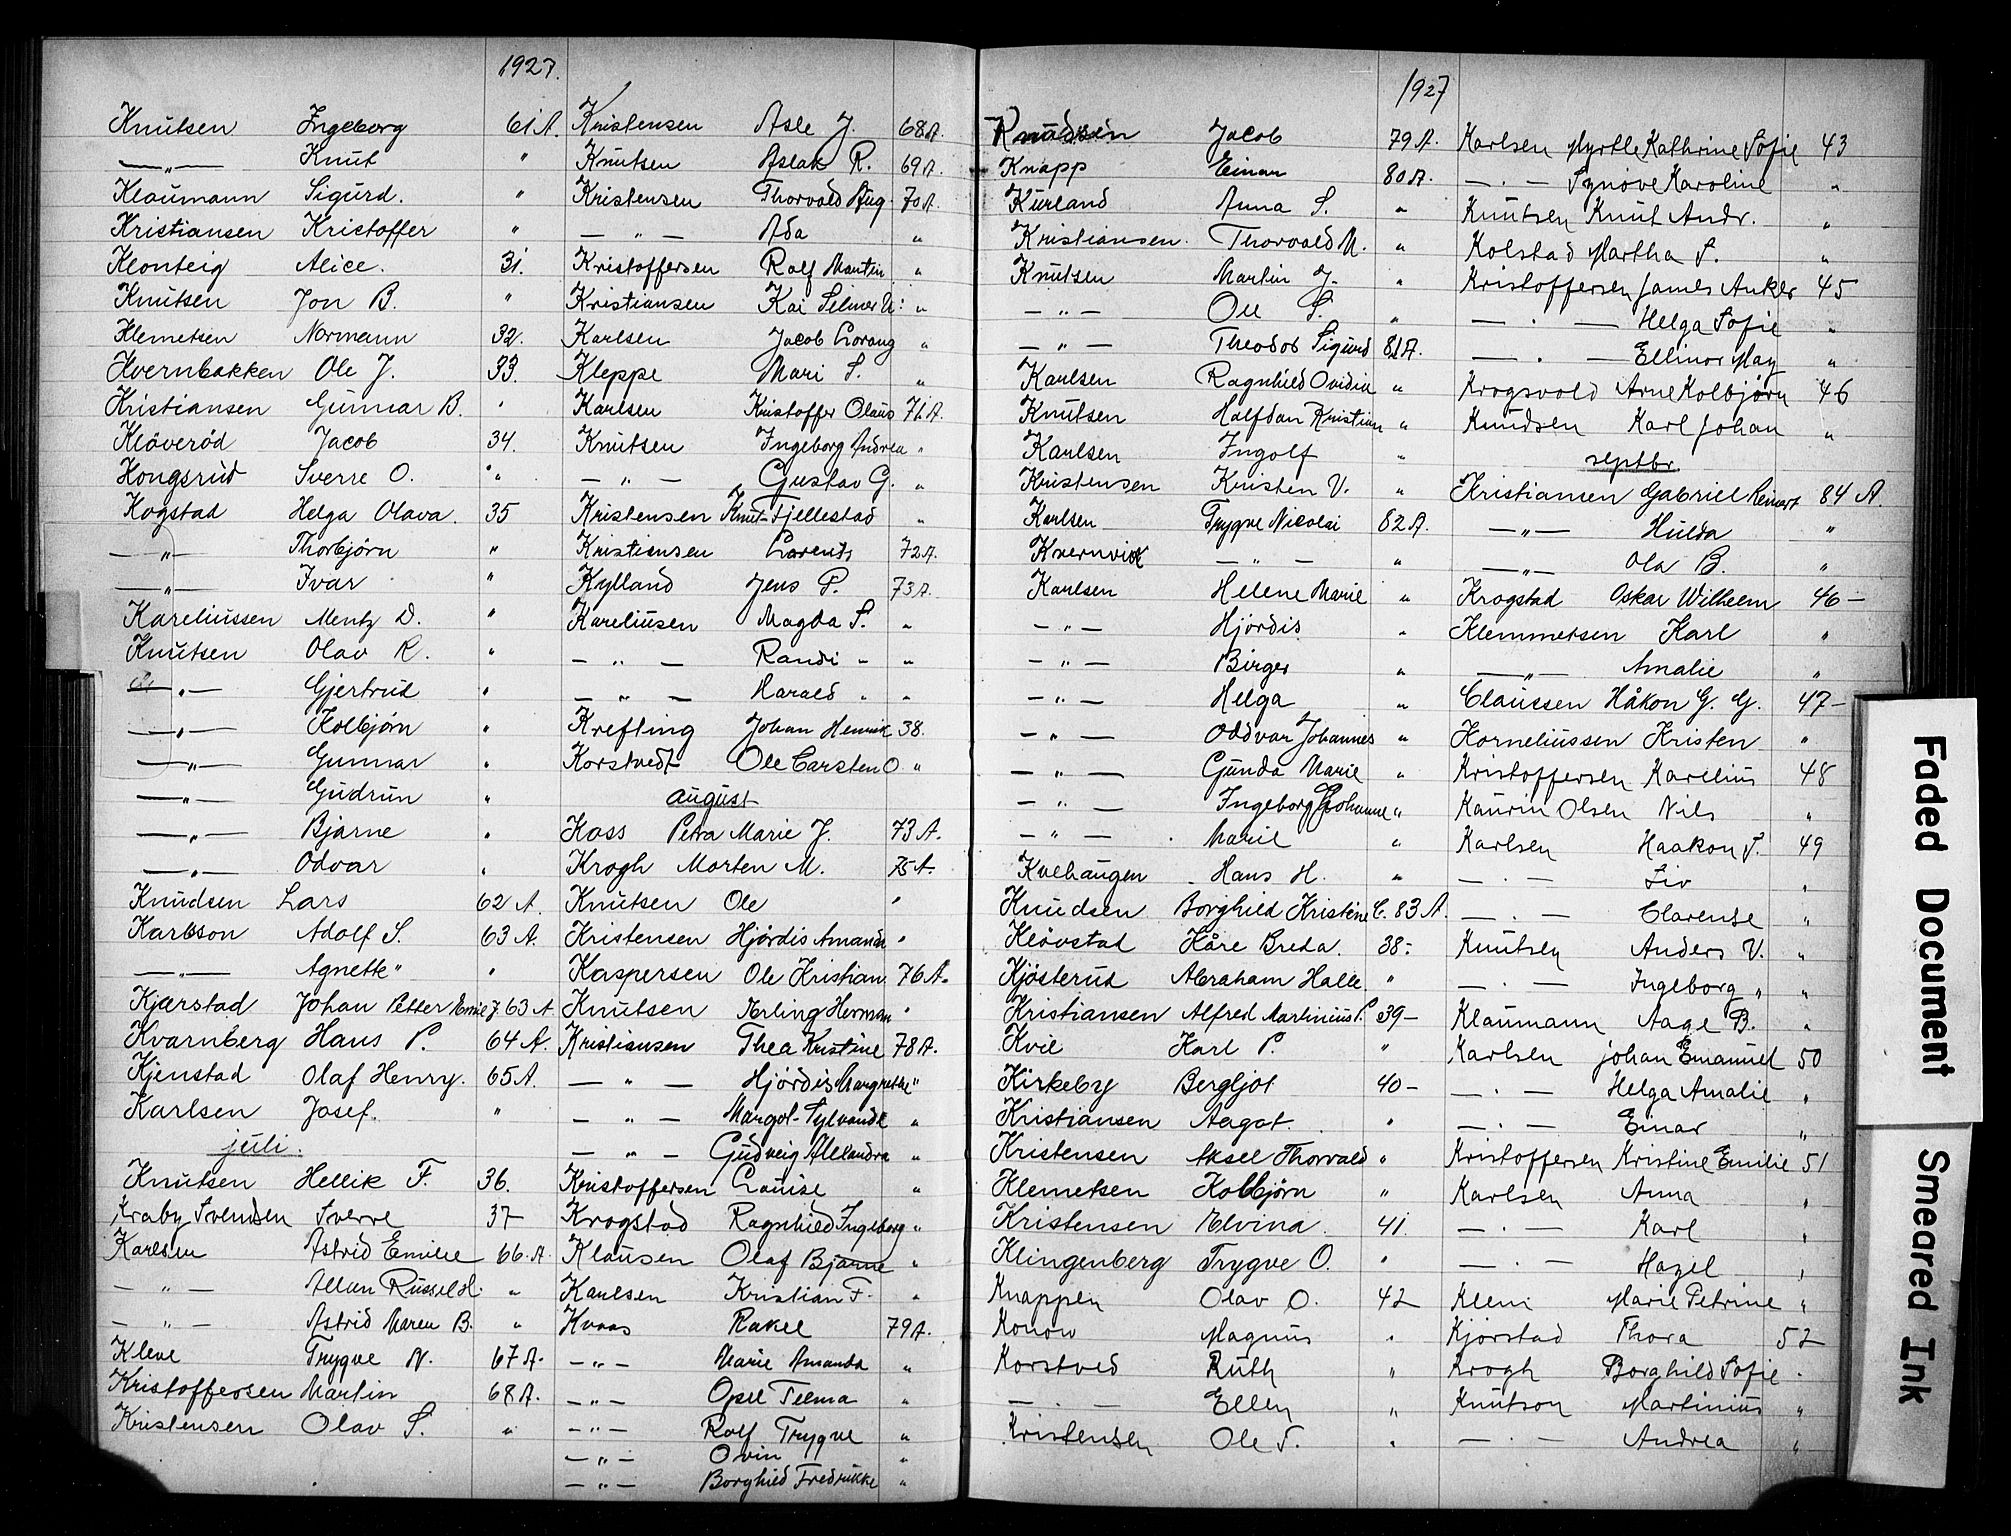 1927.
Knutsen Ingeborg 61 A.
—„— Knut "
Klaumann Sigurd. "
Kristiansen Kristoffer "
Klonteig Alice. 31.
Knutsen Jon B. "
Klemetsen Normann 32.
Kvernbakken Ole J. 33.
Kristiansen Gunnar B. "
Kløverød Jacob 34.
Kongsrud Sverre O. "
Kogstad Helga Olava. 35
—„— Thorbjørn "
—„— Ivar "
Kareliussen Mentz D. "
Knutsen Olav K. "
—„— Gjertrud "
—„— Kolbjørn "
—„— Gunnar "
—„— Gudrun "
—„— Bjarne "
—„— Odvar "
Knudsen Lars 62 A.
Karlsson Adolf S. 63 A.
—„— Agnette " "
Kjærstad Johan Petter Emil J. 63 A
Kvarnberg Hans P. 64 A.
Kjenstad Olaf Henry. 65 A.
Karlsen Josef. "
juli.
Knutsen Hellik F. 36.
Kraby Svendsen Sverre 37
Karlsen Astrid Emilie 66 A.
— „ — Allan Russel H. "
— „ — Astrid Maren B. "
Kleve Trygve N. 67 A.
Kristoffersen Martin 68 A.
Kristensen Olav S. "
Kristensen Asle J. 68 A.
Knutsen Aslak R. 69 A.
Kristensen Thorvald Aug. 70 A.
— „ — Ada "
Kristoffersen Rolf Martin "
Kristiansen Kai Selmer "
Karlsen Jacob Lorang "
Kleppe Mari S. "
Karlsen Kristoffer Olaus 71 A.
Knutsen Ingeborg Andrea "
— „ — Gustav G. "
Kristensen Knut Fjellestad "
Kristiansen Lorents 72 A.
Kylland Jens P. 73 A.
Kareliusen Magda S. "
— „ — Randi " "
— „ — Harald " "
Krefting Johan Henrik 38.
Korstvedt Ole Carsten O. "
august
Kass Petra Marie J. 73 A.
Krogh Morten M. 75 A.
Knutsen Ole "
Kristensen Hjørdis Amanda "
Kaspersen Ole Kristian 76 A.
Knutsen Erling Herman "
Kristiansen Thea Kristine 78 A.
— „ — Hjørdis Margrethe "
— „ — Margot Sylvande "
— „ — Gudveig Alexandra "
Kristoffersen Louise "
Krogstad Ragnhild Ingeborg "
Klausen Olaf Bjarne "
Karlsen Kristian F. "
Kvaas Rakel 79 A.
—„— Marie Amanda "
—„— Opel Telma "
—„— Rolf Trygve "
—„— Ovin "
—„— Borghild Fredrikke "
1927
Knudsen Jacob 79 A.
Knapp Einar 80 A.
Kurland Anna S. "
Kristiansen. Thorvald M. "
Knutsen Martin J. "
— „ — Ole S. "
— „ — Theodor Sigurd 81 A.
Karlsen Ragnhild Ovidia "
Knutsen Halfdan Kristian "
Karlsen Ingolf "
Kristensen Kristen V. "
Karlsen Trygve Nicolai 82 A.
Kvernvik — „ — "
Karlsen Helene Marie "
— „ — Hjørdis "
— „ — Birger "
— „ — Helga "
— „ — Oddvar Johannes "
— „ — Gunda Marie "
— „ — Ingeborg Johanne "
— „ — Marie "
Kvehaugen Hans H. "
Knudsen Borghild Kristine C. 83 A.
Kløvstad Kåre Breda. 38.
Kjøsterud Abraham Halle "
Kristiansen Alfred Martinius P. 39
Kvie Karl P. "
Kirkeby Bergljot 40
Kristiansen Aagot. "
Kristensen Aksel Thorvald "
Klemetsen Kolbjørn "
Kristensen Elvina. 41.
Klingenberg Trygve O. "
Knappen Olav O. 42
Konow Magnus "
Korstved Ruth "
— . — Ellen "
Kristensen Ole T. "
Karlsen Myrtle Kathrine Sofie 43
— . — Synøve Karoline "
Knutsen Knut Andr. "
Kolstad Martha S. "
Kristoffersen James Anker 45
— . — Helga Sofie "
— . — Ellinor May "
Krogsvold Arne Kolbjørn 46
Knudsen Karl Johan "
septbr.
Kristiansen Gabriel Reinert 84 A.
—„— Hulda "
—„— Ola B. "
Krogstad Oskar Wilhelm 46
Klemmetsen Karl "
—„— Amalie "
Claussen Håkon G. G. 47
Korneliussen Kristen "
Kristoffersen Karelius 48
Kaurin Olsen Nils "
Karlsen Haakon T. 49
— . — Liv "
— . — Clarense "
Knutsen Anders V. "
— . — Ingeborg " "
Klaumann Aage B. "
Karlsen Johan Emanuel 50
— . — Helga Amalie "
— . — Einar "
Kristoffersen Kristine Emilie 51
Karlsen Anna "
— . — Karl "
— . — Hazel "
Klem Marie Petrine "
Kjørstad Thora 52
Krogh Borghild Sofie "
Knutson Martinius "
— . — Andrea "
Faded Document
Smeared Ink